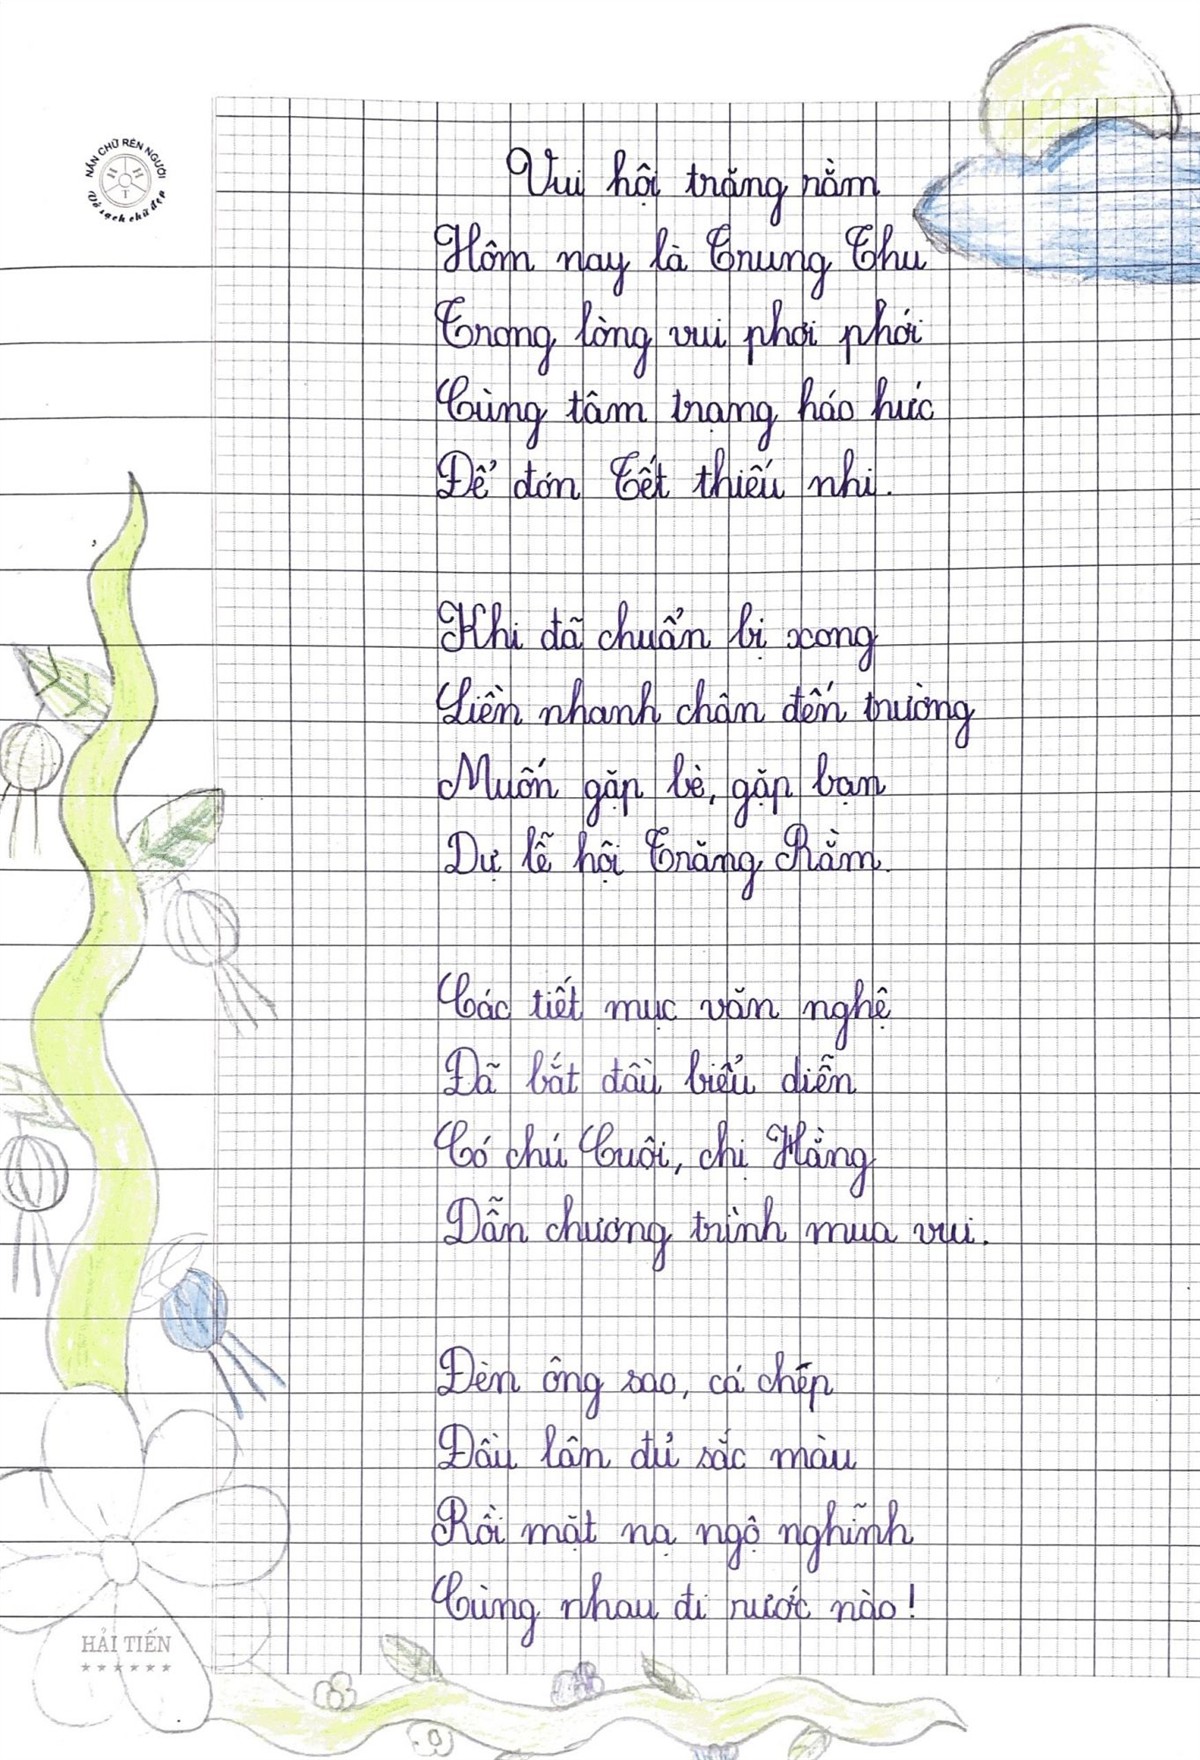 NẮN CHỮ RÈN NGƯỜI
H H T
Vở sạch chữ đẹp
Vui hội trăng rằm
Hôm nay là Trung Thu
Trong lòng vui phơi phới
Cùng tâm trạng háo hức
Để đón Tết thiếu nhi.
Khi đã chuẩn bị xong
Liền nhanh chân đến trường
Muốn gặp bè, gặp bạn
Dự lễ hội Trăng Rằm.
Các tiết mục văn nghệ
Đã bắt đầu biểu diễn
Có chú Cuội, chị Hằng
Dẫn chương trình mua vui.
Đèn ông sao, cá chép
Đầu lân đủ sắc màu
Rồi mặt nạ ngộ nghĩnh
Cùng nhau đi rước nào!
HẢI TIẾN